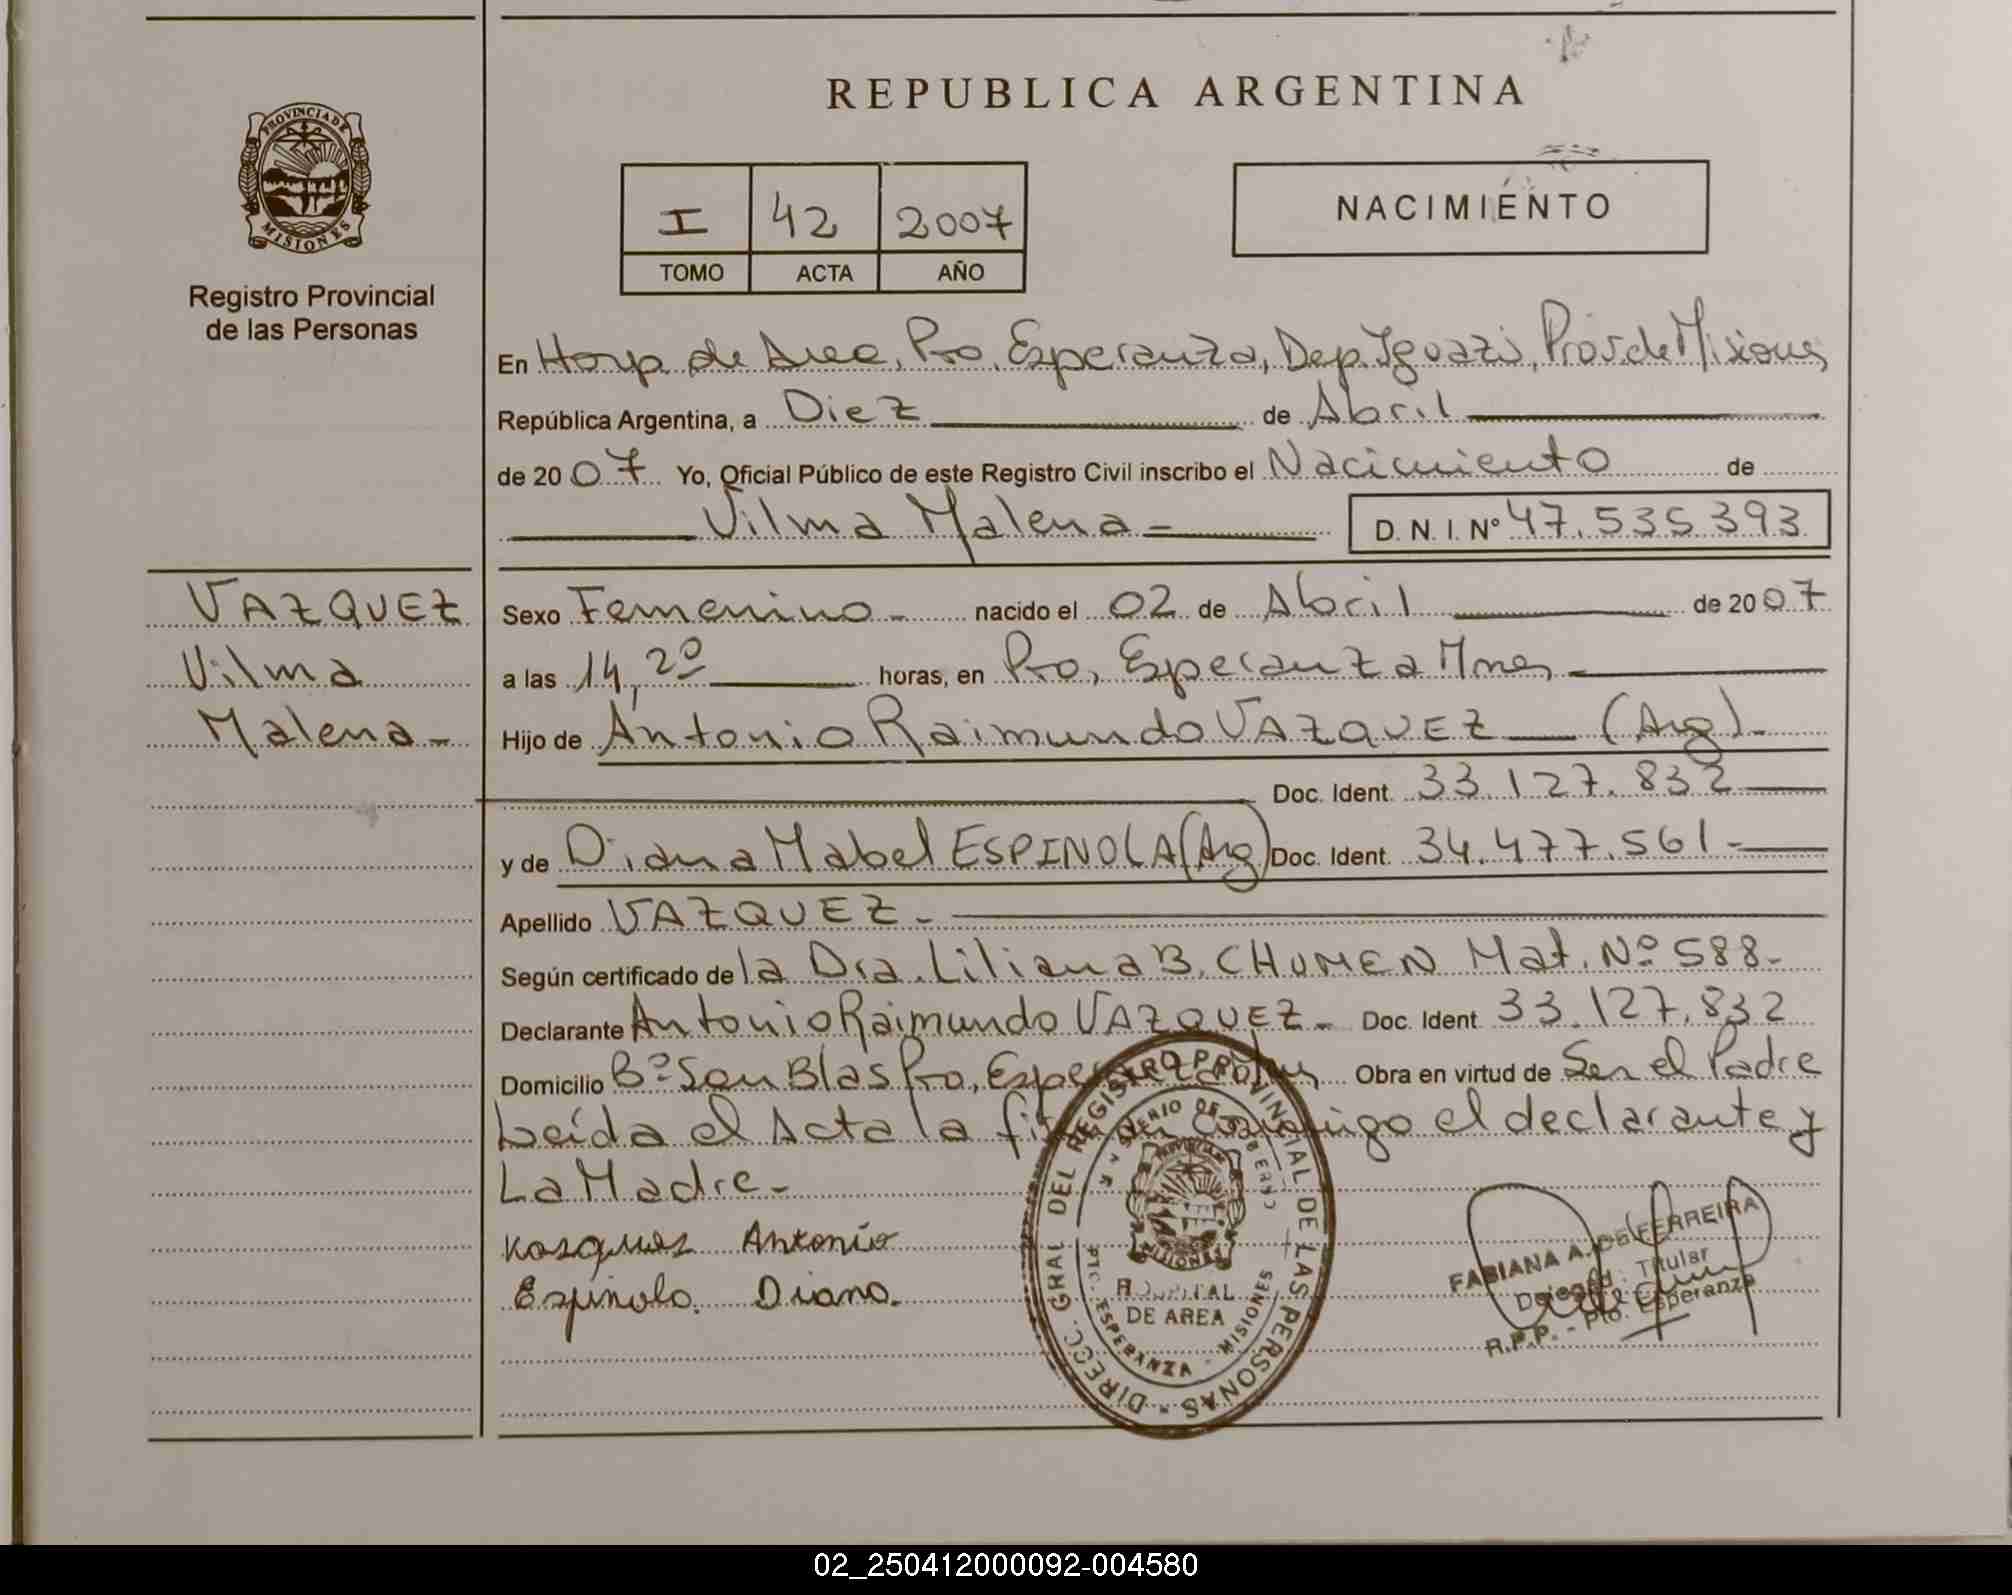 REPUBLICA ARGENTINA
PROVINCIA DE
MISIONES
Registro Provincial
de las Personas
I 42 2007
TOMO ACTA AÑO
NACIMIENTO
En Hosp. de Area, Pto, Esperanza, Dep. Iguazú, Prov. de Misiones
República Argentina, a Diez de Abril
de 2007 Yo, Oficial Público de este Registro Civil inscribo el Nacimiento de
Vilma Malena - D. N. I. Nº 47.535.393
VAZQUEZ
Vilma
Malena -
Sexo Femenino - nacido el 02 de Abril de 2007
a las 14,20 horas, en Pto, Esperanza Mnes
Hijo de Antonio Raimundo VAZQUEZ (Arg) -
Doc. Ident. 33.127.832
y de Diana Mabel ESPINOLA (Arg) Doc. Ident. 34.477.561 -
Apellido VAZQUEZ -
Según certificado de la Dra. Liliana B. CHUMEN Mat. Nº 588 -
Declarante Antonio Raimundo VAZQUEZ - Doc. Ident. 33.127.832
Domicilio Bº San Blas Pto, Esperanza Obra en virtud de Ser el Padre
Leída el Acta la firman Conmigo el declarante y
La Madre -
Vasques Antonio
Espinola Diana.
DIRECC. GRAL DEL REGISTRO PROVINCIAL DE LAS PERSONAS
MISIONES
HOSPITAL
DE AREA
PTO. ESPERANZA - MISIONES
FABIANA A. DE FERREIRA
Titular
R.P.P. - Pto. Esperanza
02_250412000092-004580